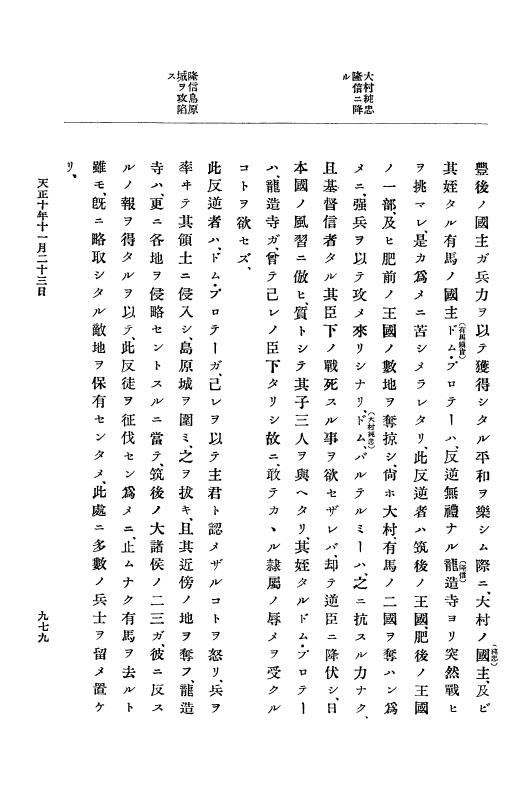 大村純忠
隆信ニ降
ル
隆信島原
城ヲ攻陷
ス
豐後ノ國主ガ兵力ヲ以テ獲得シタル平和ヲ樂シム際ニ、大村ノ國主、及ビ
(純忠)
其姪タル有馬ノ國主ドム・プロテーハ、反逆無禮ナル龍造寺ヨリ突然戰ヒ
(有馬鎭貴)
(隆信)
ヲ挑マレ、是カ爲メニ苦シメラレタリ、此反逆者ハ筑後ノ王國、肥後ノ王國
ノ一部、及ヒ肥前ノ王國ノ數地ヲ奪掠シ、尙ホ大村、有馬ノ二國ヲ奪ハン爲
メニ、强兵ヲ以テ攻メ來リシナリ、ドム、バルテルミーハ、之ニ抗スル力ナク、
(大村純忠)
且基督信者タル其臣下ノ戰死スル事ヲ欲セザレバ、却テ逆臣ニ降伏シ、日
本國ノ風習ニ倣ヒ、質トシテ其子三人ヲ與ヘタリ、其姪タルドム・プロテー
ハ、龍造寺ガ、曾テ己レノ臣下タリシ故ニ、敢テカヽル隷屬ノ辱メヲ受クル
コトヲ欲セズ、
此反逆者ハ、ドム・プロテーガ、己レヲ以テ主君ト認メザルコトヲ怒リ、兵ヲ
率ヰテ其領土ニ侵入シ、島原城ヲ圍ミ、之ヲ拔キ、且其近傍ノ地ヲ奪フ、龍造
寺ハ、更ニ各地ヲ侵略セントスルニ當テ、筑後ノ大諸侯ノ二三ガ、彼ニ反ス
ルノ報ヲ得タルヲ以テ、此反徒ヲ征伐セン爲メニ、止ムナク有馬ヲ去ルト
雖モ、旣ニ略取シタル敵地ヲ保有センタメ、此處ニ多數ノ兵士ヲ留メ置ケ
リ、
天正十年十一月二十三日
九七九